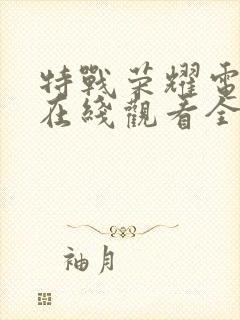 特戰荣耀電
在綫觀看全
袖月